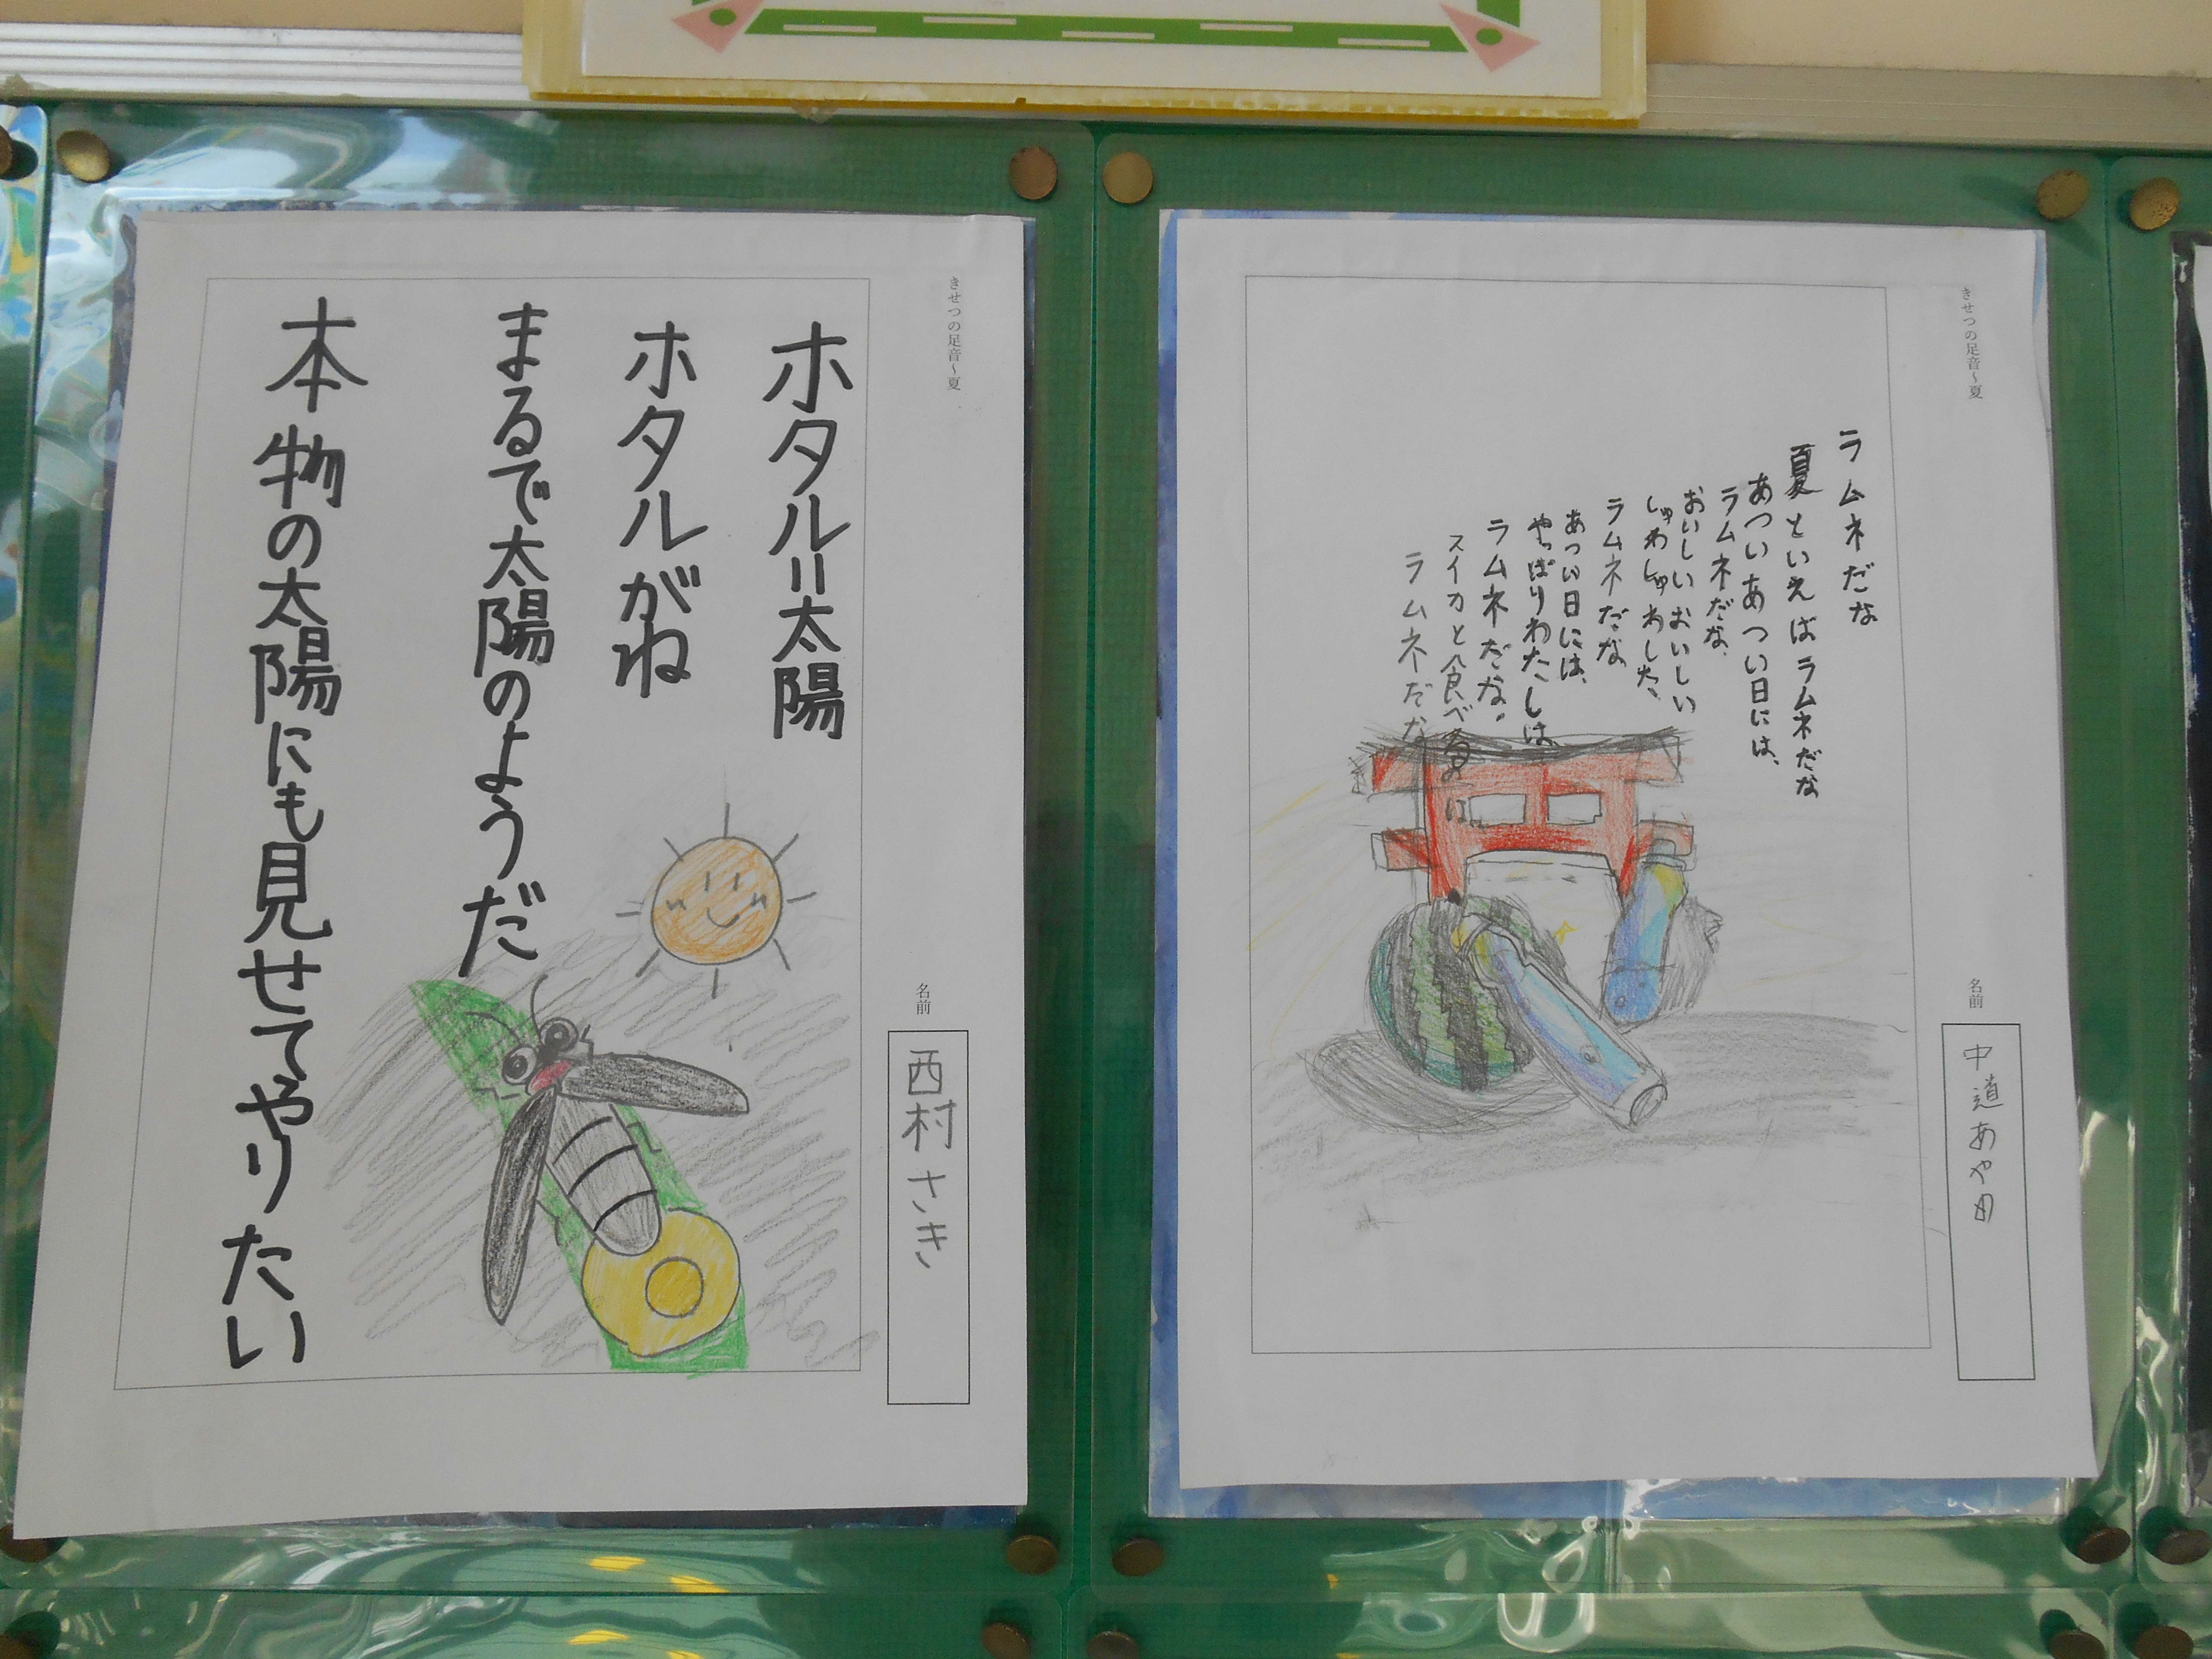 きせつの足音〜夏
ラムネだな
夏といえばラムネだな
あついあつい日には、
ラムネだな、
おいしいおいしい
しゅわしゅわした、
ラムネだな
あつい日には、
やっぱりわたしは
ラムネだな。
スイカと食べるのに
ラムネだな
名前
中道あや
きせつの足音〜夏
ホタル=太陽
ホタルがね
まるで太陽のようだ
本物の太陽にも見せてやりたい
名前
西村さき